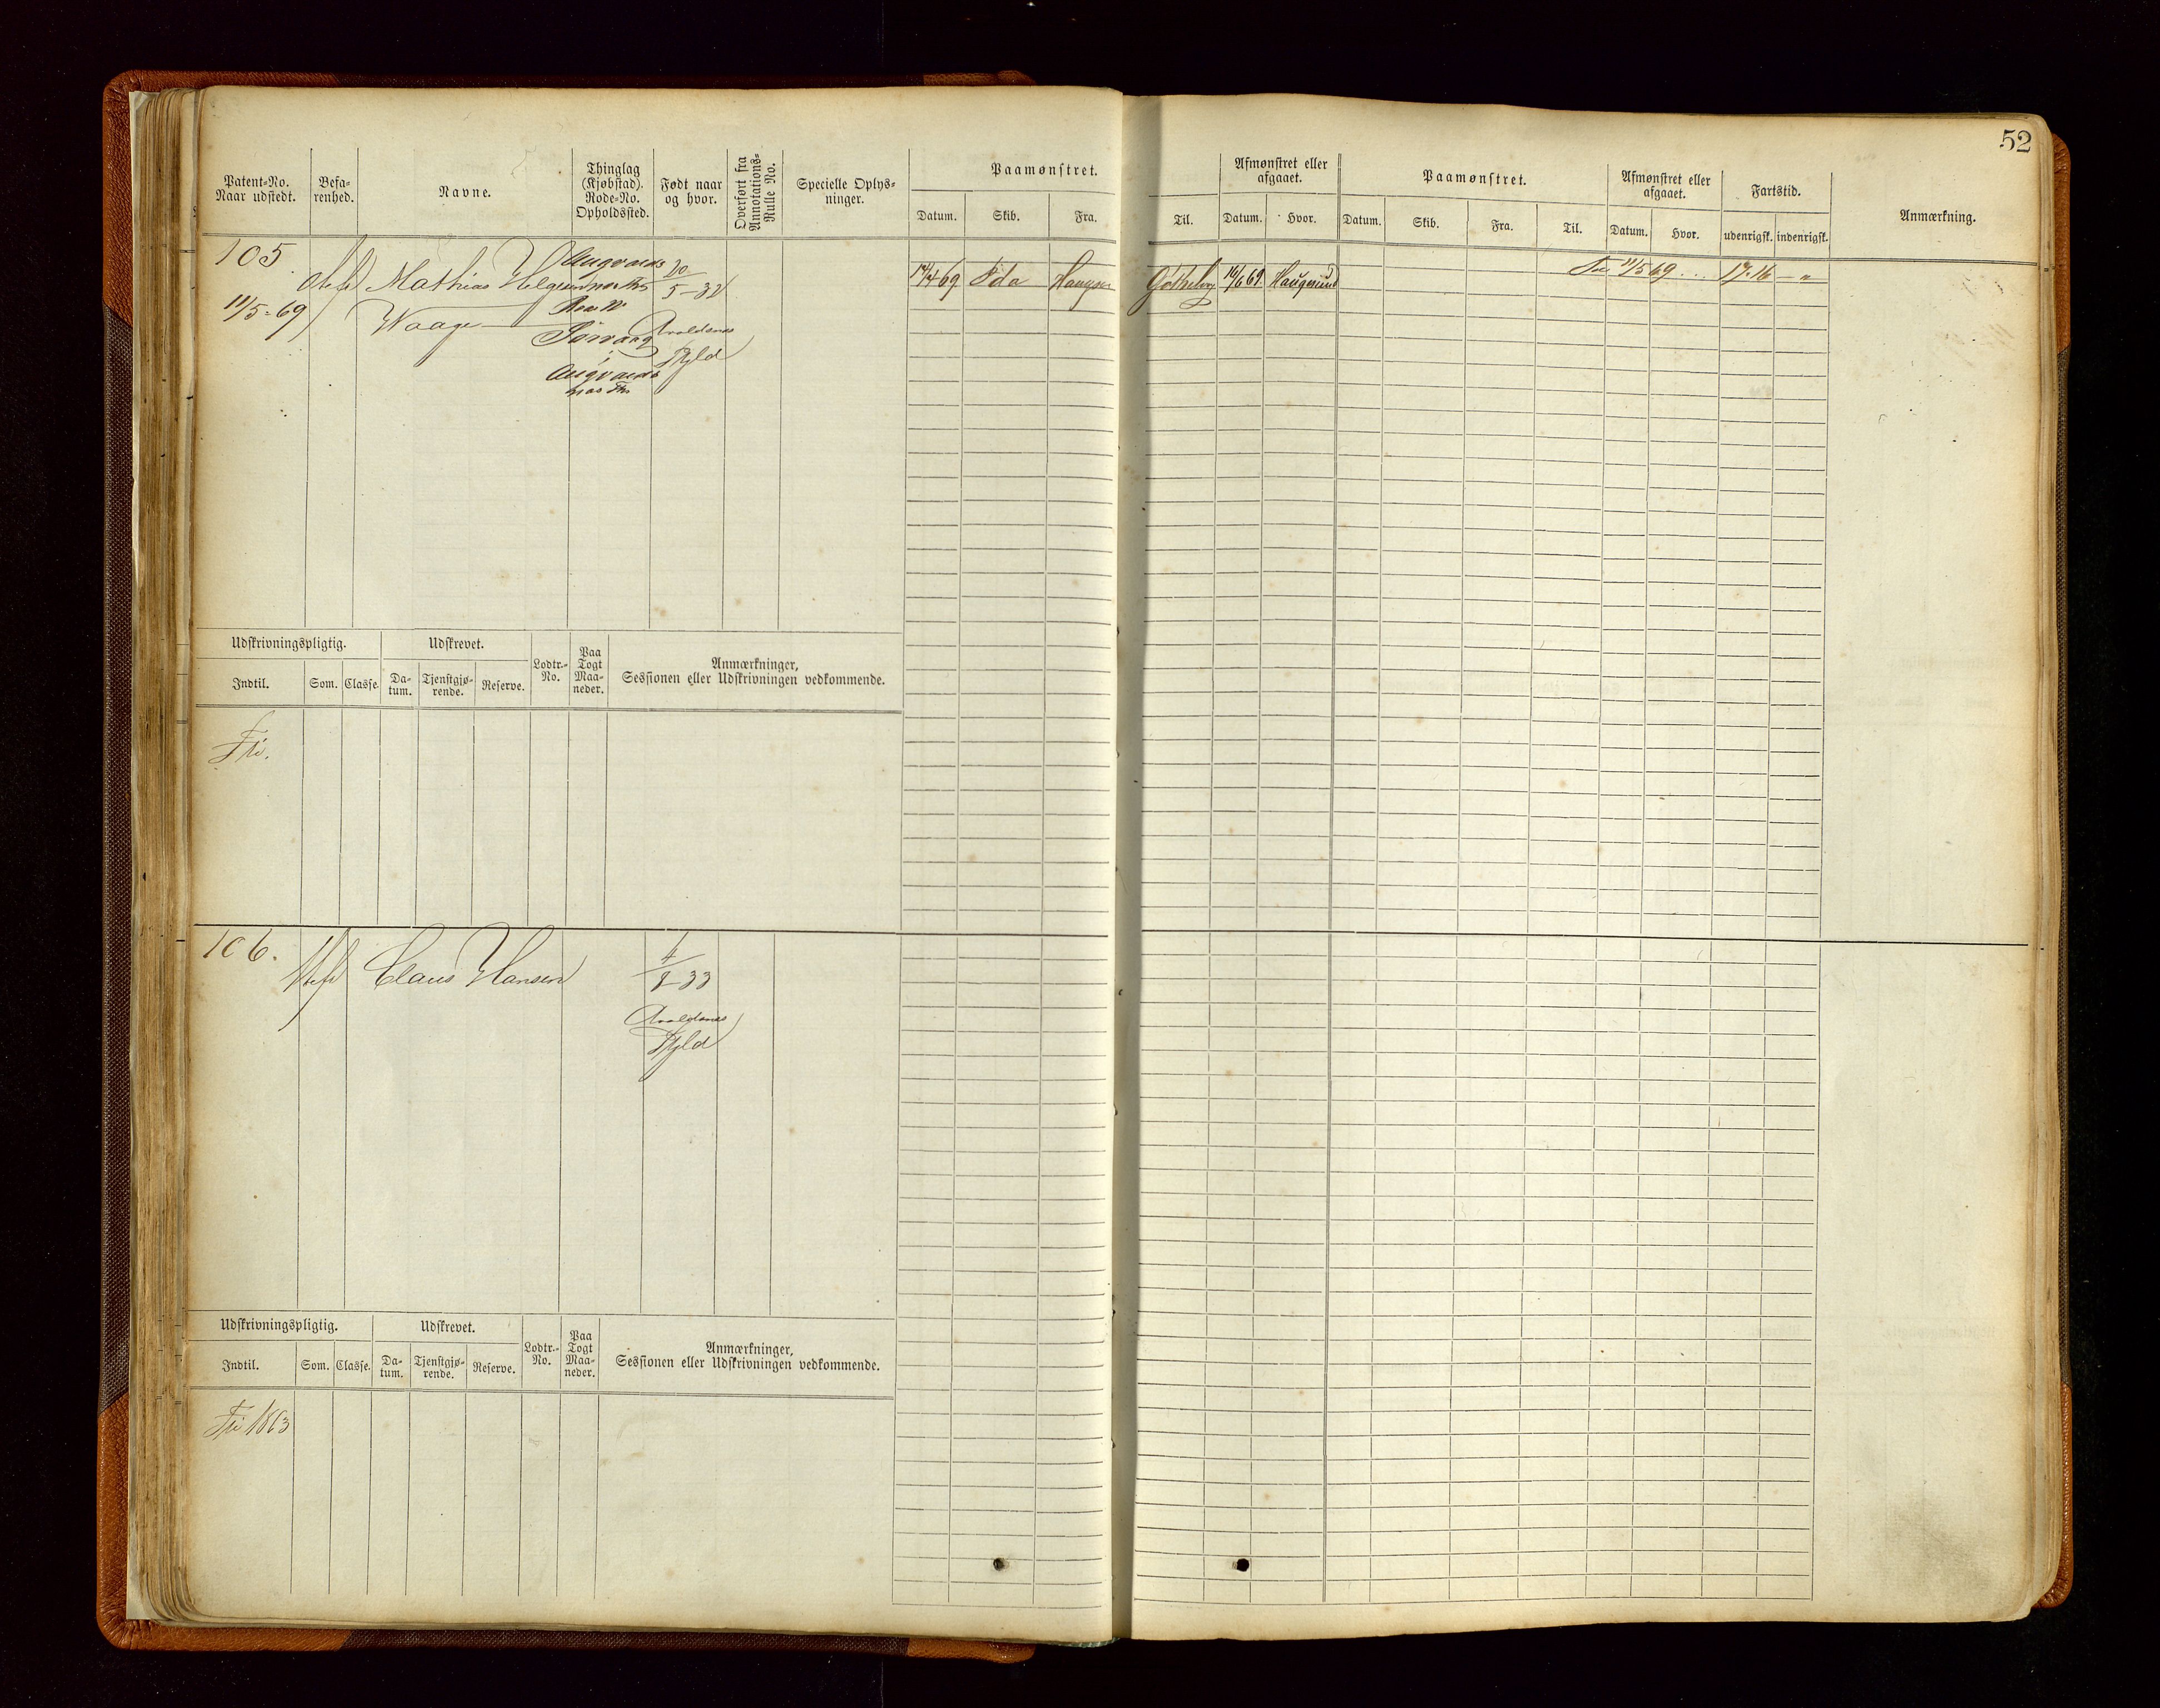 52
Patent-No. Naar udstedt.
Befarenhed.
Navne.
Thinglag (Kjøbstad). Rode-No. Opholdssted.
Født naar og hvor.
Overført fra Annotations-Rulle No.
Specielle Oplysninger.
Paamønstret.
Datum. Skib. Fra.
Til.
Afmønstret eller afgaaet.
Datum. Hvor.
Paamønstret.
Datum. Skib. Fra. Til.
Afmønstret eller afgaaet.
Datum. Hvor.
Fartstid.
udenrigsk. indenrigsk.
Anmærkning.
105
11/5-69
Mathias
Waage
20/5-32
Avaldsnes
17/4 69 Ida
Gøtheborg 16/6 69 Haugesund
11/5 69
17.16 - "
Udskrivningspligtig.
Indtil. Som. Classe.
Udskrevet.
Datum. Tjenstgjørende. Reserve.
Lodtr.-No.
Paa Togt Maaneder.
Anmærkninger,
Sessionen eller Udskrivningen vedkommende.
Fri.
106.
Claus Hansen
Avaldsnes
Udskrivningspligtig.
Indtil. Som. Classe.
Udskrevet.
Datum. Tjenstgjørende. Reserve.
Lodtr.-No.
Paa Togt Maaneder.
Anmærkninger,
Sessionen eller Udskrivningen vedkommende.
Fri 1863